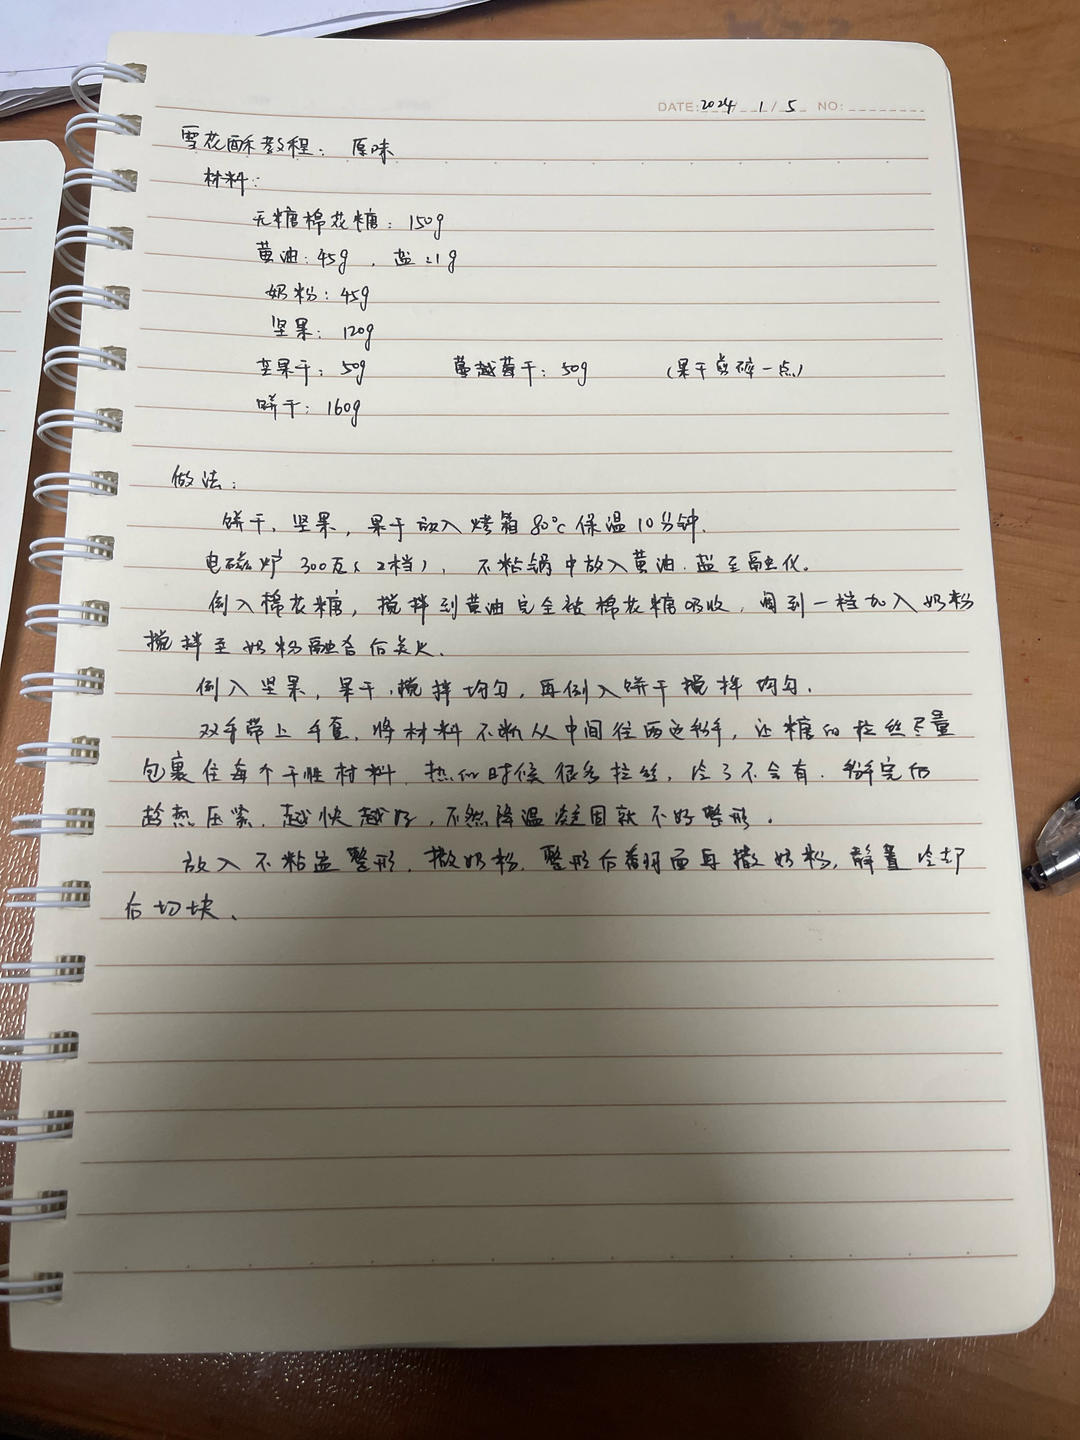 DATE: 2024 1/5 NO:
雪花酥教程: 原味
材料:
无糖棉花糖: 150g
黄油: 45g , 盐:1g
奶粉: 45g
坚果: 120g
芒果干: 50g 蔓越莓干: 50g (果干剪碎一点)
饼干: 160g
做法:
饼干, 坚果, 果干放入烤箱80℃保温10分钟.
电磁炉300瓦(2档), 不粘锅中放入黄油.盐至融化.
倒入棉花糖, 搅拌到黄油完全被棉花糖吸收, 调到一档加入奶粉
搅拌至奶粉融合后关火.
倒入坚果, 果干,搅拌均匀, 再倒入饼干搅拌均匀.
双手带上手套, 将材料不断从中间往两边掰, 让糖的拉丝尽量
包裹住每个干性材料. 热的时候很多拉丝, 冷了不会有. 掰完后
趁热压紧. 越快越好, 不然降温凝固就不好整形.
放入不粘盆整形, 撒奶粉, 整形后翻面再撒奶粉, 静置冷却
后切块.